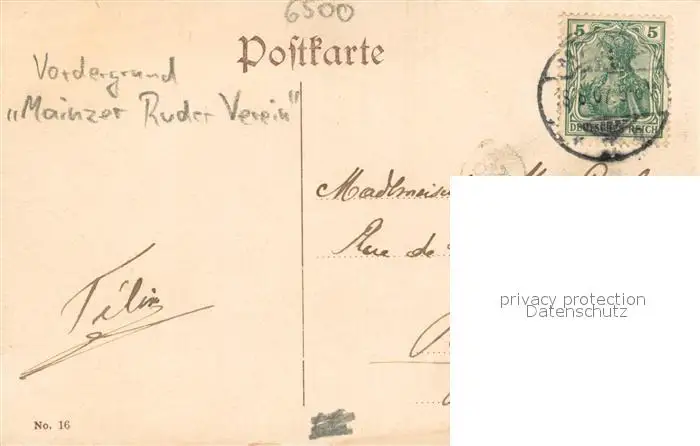 6500
Postkarte
Vordergrund
„Mainzer Ruder Verein"
5 5
DEUTSCHES REICH
Rue de
privacy protection
Datenschutz
No. 16